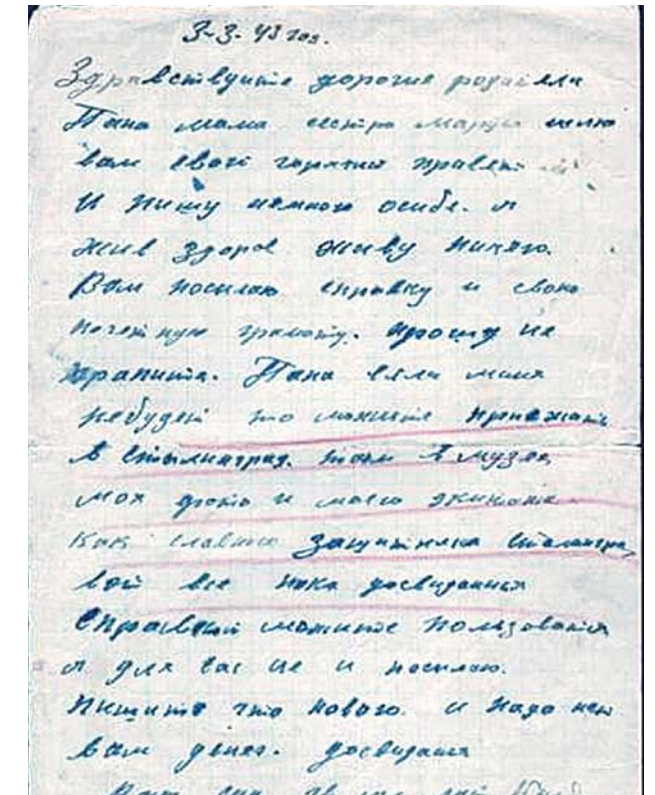 3-3-43 год.
Здравствуйте дорогие родители
Папа мама сестра Маруся шлю
вам свой горячий привет
И пишу немного о себе. я
жив здоров живу ничего.
Вам посылаю справку и свою
почетную грамоту. прошу её
храните. Папа если меня
небудет то можите приежать
в Сталинград. там в музее
моя фото и моего экипажа
как славного защитника Сталинграда
вот все пока досвидания
Справкой можите пользоватся
я для вас её и посылаю.
Пишите что нового. и надо нет
вам денег. досвидания
Ваш сын